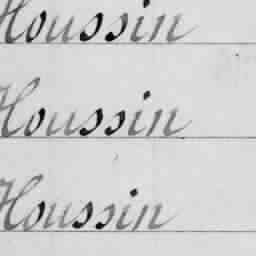 Houssin
Houssin
Houssin